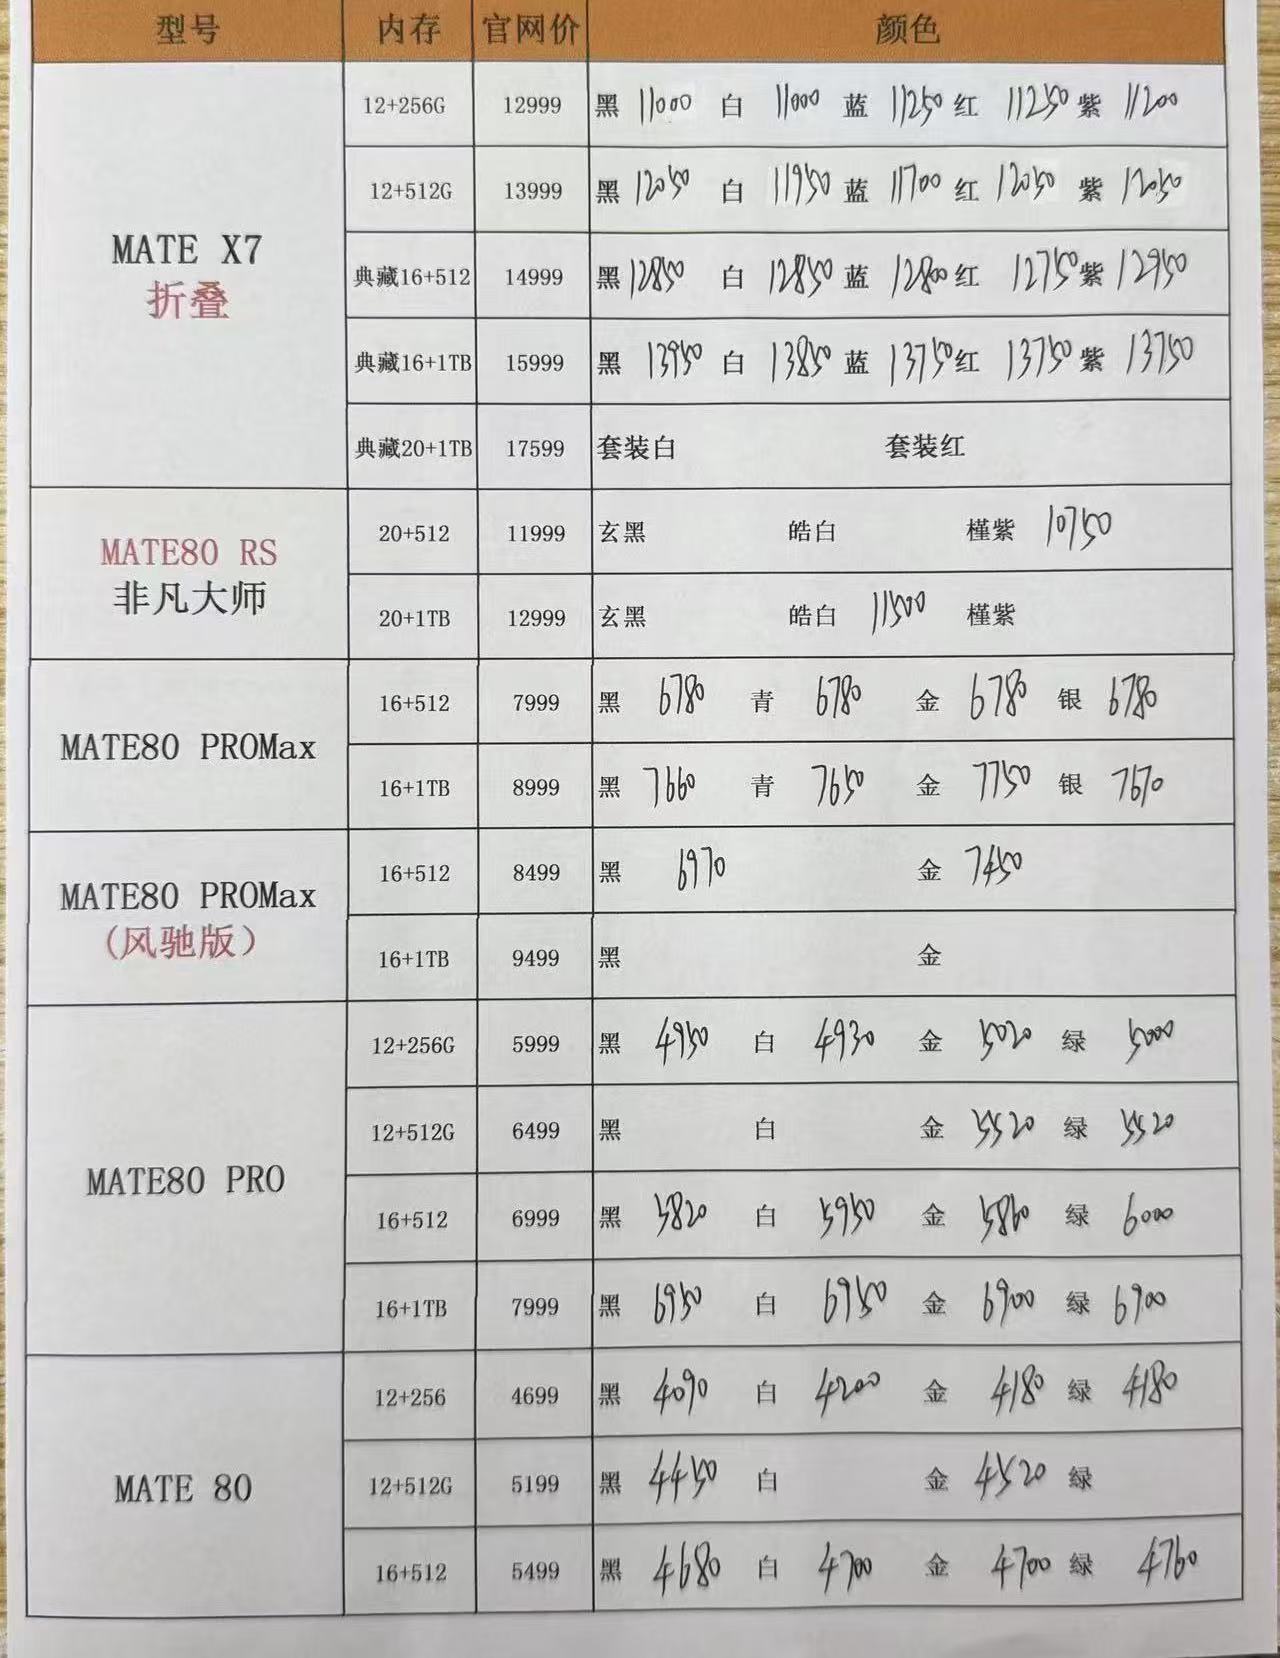 型号 内存 官网价 颜色
12+256G 12999 黑 11000 白 11000 蓝 11250 红 11250 紫 11200
12+512G 13999 黑 12050 白 11950 蓝 11700 红 12050 紫 12050
MATE X7
折叠
典藏16+512 14999 黑 12850 白 12850 蓝 12800 红 12750 紫 12950
典藏16+1TB 15999 黑 13950 白 13850 蓝 13750 红 13750 紫 13750
典藏20+1TB 17599 套装白 套装红
MATE80 RS
非凡大师
20+512 11999 玄黑 皓白 槿紫 10750
20+1TB 12999 玄黑 皓白 11500 槿紫
MATE80 PROMax
16+512 7999 黑 6780 青 6780 金 6780 银 6780
16+1TB 8999 黑 7660 青 7650 金 7750 银 7670
MATE80 PROMax
(风驰版)
16+512 8499 黑 6970 金 7450
16+1TB 9499 黑 金
MATE80 PRO
12+256G 5999 黑 4950 白 4930 金 5020 绿 5000
12+512G 6499 黑 白 金 5520 绿 5520
16+512 6999 黑 5820 白 5950 金 5860 绿 6000
16+1TB 7999 黑 6950 白 6950 金 6900 绿 6900
MATE 80
12+256 4699 黑 4090 白 4200 金 4180 绿 4180
12+512G 5199 黑 4450 白 金 4520 绿
16+512 5499 黑 4680 白 4700 金 4700 绿 4760